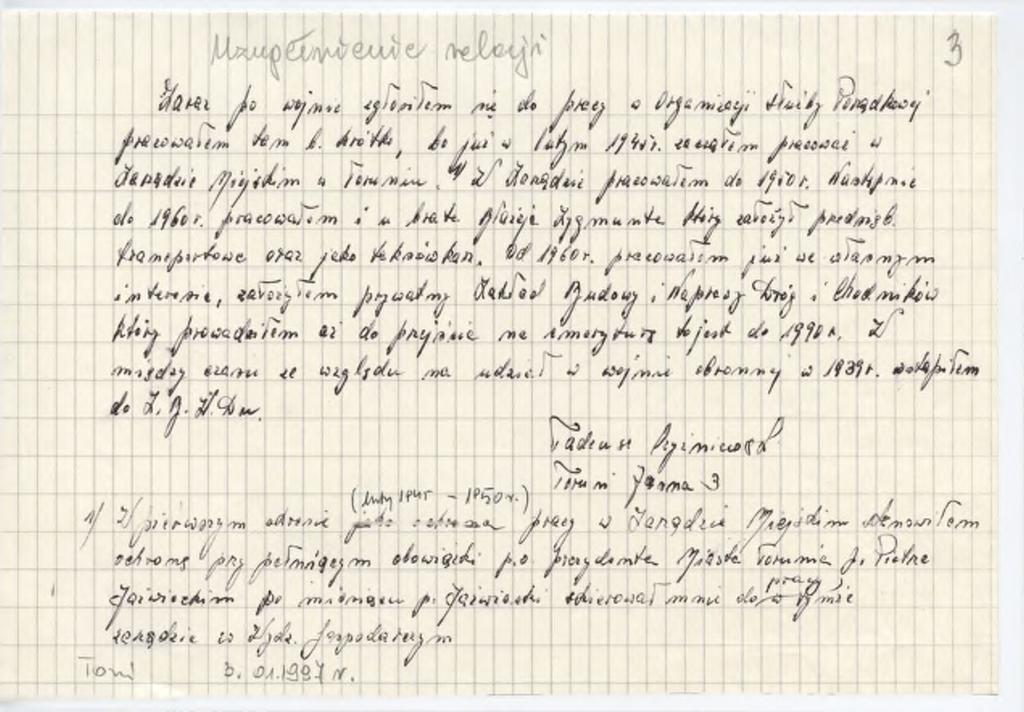 Uzupełnienie relacji
3
Zaraz po wojnie zgłosiłem się do pracy w Organizacji Służby Porządkowej
pracowałem tam b. krótko, bo już w lutym 1945r. zacząłem pracować w
Zarządzie Miejskim w Toruniu. 1/ W Zarządzie pracowałem do 1950r. Następnie
do 1960r. pracowałem i u brata Błażeja Zygmunta który założył przedsięb.
transportowe oraz jako taksówkarz. Od 1960r. pracowałem już we własnym
interesie, założyłem prywatny Zakład Budowy i Naprawy Dróg i Chodników
który prowadziłem aż do przejścia na emeryturę to jest do 1990r. W
między czasie ze względu na udział w wojnie obronnej w 1939r. wstąpiłem
do Z.B.W.D
Tadeusz
Toruń 3
(luty 1945 – 1950r.)
1/ W pierwszym okresie pracy w Zarządzie Miejskim stanowiłem
ochronę przy pełniącym obowiązki p.o. prezydenta Miasta Torunia p. Piotrze
Jaźwieckim po miesiącu p. Jaźwiecki skierował mnie do pracy w tymże
zarządzie w Wydz. Gospodarczym
3.01.1997 r.